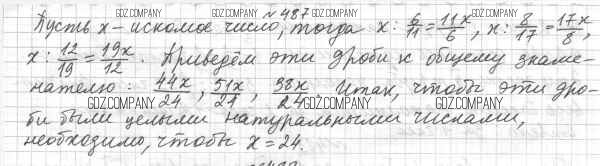 №487
Пусть x – искомое число, тогда x : 6/11 = 11x/6, x : 8/17 = 17x/8,
x : 12/19 = 19x/12. Приведём эти дроби к общему знаме-
нателю: 44x/24, 51x/24, 38x/24. Итак, чтобы эти дро-
би были целыми натуральными числами,
необходимо, чтобы x = 24.
GDZ.COMPANY GDZ.COMPANY GDZ.COMPANY
GDZ.COMPANY GDZ.COMPANY GDZ.COMPANY
GDZ.COMPANY GDZ.COMPANY GDZ.COMPANY